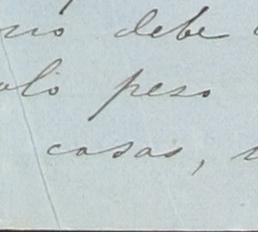 no debe
solo peso
casas,